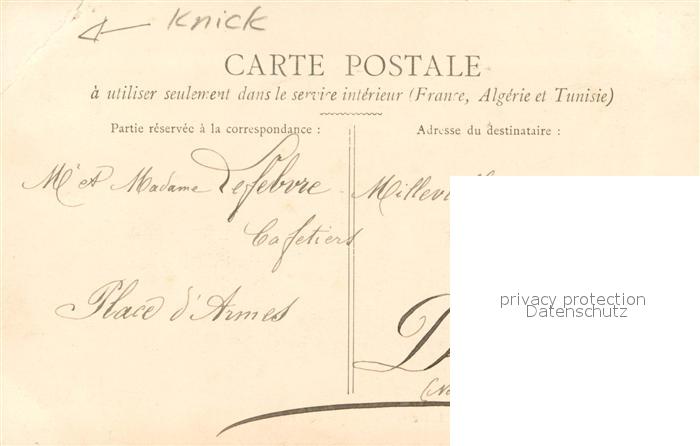 Knick
CARTE POSTALE
à utiliser seulement dans le service intérieur (France, Algérie et Tunisie)
Partie réservée à la correspondance :
Adresse du destinataire :
Mr et Madame Lefebvre
Cafetiers
Place d'Armes
privacy protection
Datenschutz